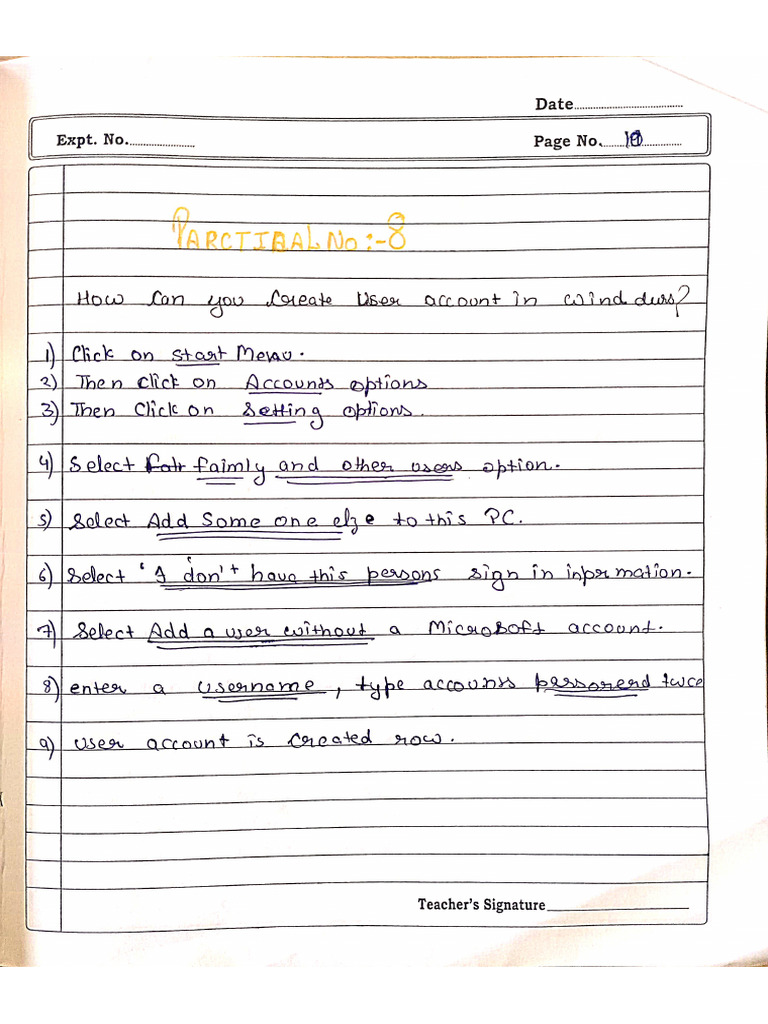 Date
Expt. No.
Page No. 10
PARCTICAL NO:-8
How Can you Create User account in winddws?
1) Click on Start Menu.
2) Then click on Accounts options
3) Then Click on Setting options.
4) Select faimly and other users option.
5) Select Add Some one elze to this PC.
6) Select 'I don't have this persons sign in inprmation.
7) Select Add a user without a Microsoft account.
8) enter a username, type accounts twce
9) user account is created row.
Teacher's Signature